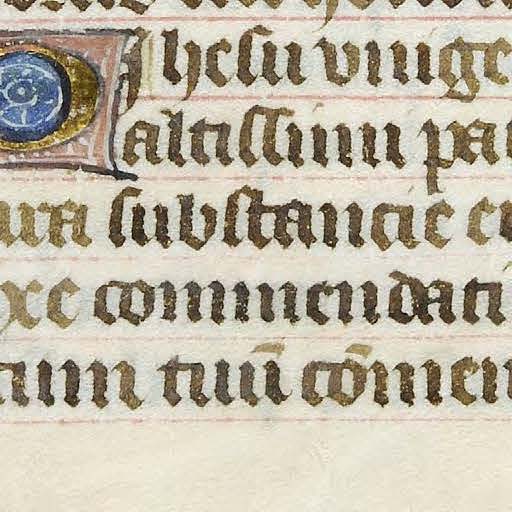 O Ihesu vnige
altissimi pat
ura substancie e
xe commendati
tum tuū cōmen